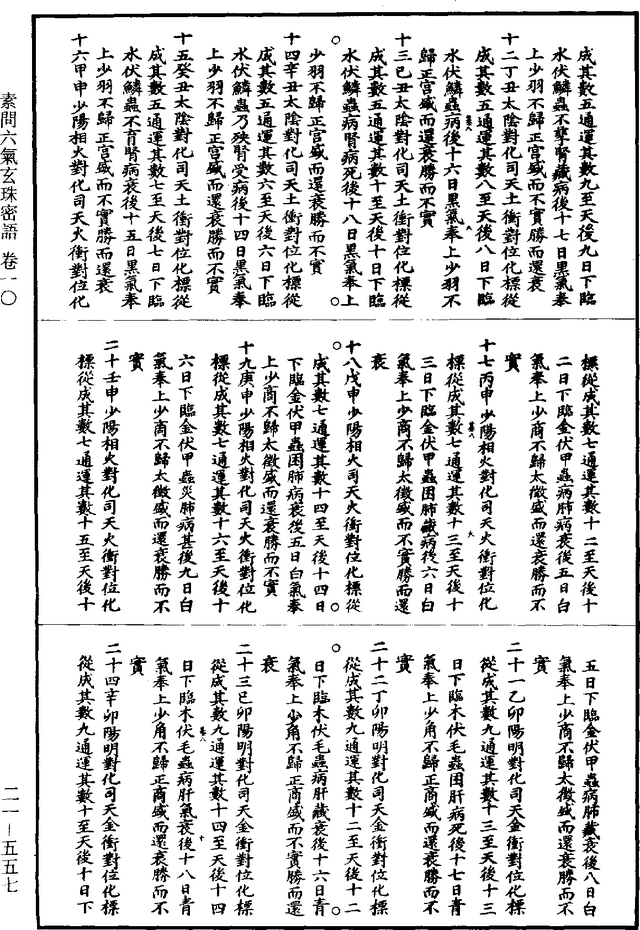 素問六氣玄珠密語　卷一〇
成其數五通運其數九至天後九日下臨
水伏鱗蟲不孕腎藏病後十七日黑氣奉
上少羽不歸正宮盛而不實勝而還衰
十二丁丑太陰對化司天土衝對位化標從
成其數五通運其數八至天後八日下臨
水伏鱗蟲病後十六日黑氣奉上少羽不
歸正宮盛而還衰勝而不實
十三己丑太陰對化司天土衝對位化標從
成其數五通運其數十至天後十日下臨
水伏鱗蟲病腎病死後十八日黑氣奉上
少羽不歸正宮盛而還衰勝而不實
十四辛丑太陰對化司天土衝對位化標從
成其數五通運其數六至天後六日下臨
水伏鱗蟲乃殃腎受病後十四日黑氣奉
上少羽不歸正宮盛而還衰勝而不實
十五癸丑太陰對化司天土衝對位化標從
成其數五通運其數七至天後七日下臨
水伏鱗蟲不育腎病衰後十五日黑氣奉
上少羽不歸正宮盛而不實勝而還衰
十六甲申少陽相火對化司天火衝對位化
標從成其數七通運其數十二至天後十
二日下臨金伏甲蟲病肺病衰後五日白
氣奉上少商不歸太徵盛而還衰勝而不
實
十七丙申少陽相火對化司天火衝對位化
標從成其數七通運其數十三至天後十
三日下臨金伏甲蟲困肺藏病後六日白
氣奉上少商不歸太徵盛而不實勝而還
衰
十八戊申少陽相火司天火衝對位化標從
成其數七通運其數十四至天後十四日
下臨金伏甲蟲困肺病衰後五日白氣奉
上少商不歸太徵盛而還衰勝而不實
十九庚申少陽相火對化司天火衝對位化
標從成其數七通運其數十六至天後十
六日下臨金伏甲蟲災肺病甚後九日白
氣奉上少商不歸太徵盛而還衰勝而不
實
二十壬申少陽相火對化司天火衝對位化
標從成其數七通運其數十五至天後十
五日下臨金伏甲蟲病肺藏衰後八日白
氣奉上少商不歸太徵盛而還衰勝而不
實
二十一乙卯陽明對化司天金衝對位化標
從成其數九通運其數十三至天後十三
日下臨木伏毛蟲困肝病死後十七日青
氣奉上少角不歸正商盛而還衰勝而不
實
二十二丁卯陽明對化司天金衝對位化標
從成其數九通運其數十二至天後十二
日下臨木伏毛蟲病肝藏衰後十六日青
氣奉上少角不歸正商盛而不實勝而還
衰
二十三己卯陽明對化司天金衝對位化標
從成其數九通運其數十四至天後十四
日下臨木伏毛蟲病肝氣衰後十八日青
氣奉上少角不歸正商盛而還衰勝而不
實
二十四辛卯陽明對化司天金衝對位化標
從成其數九通運其數十至天後十日下
二一—五五七